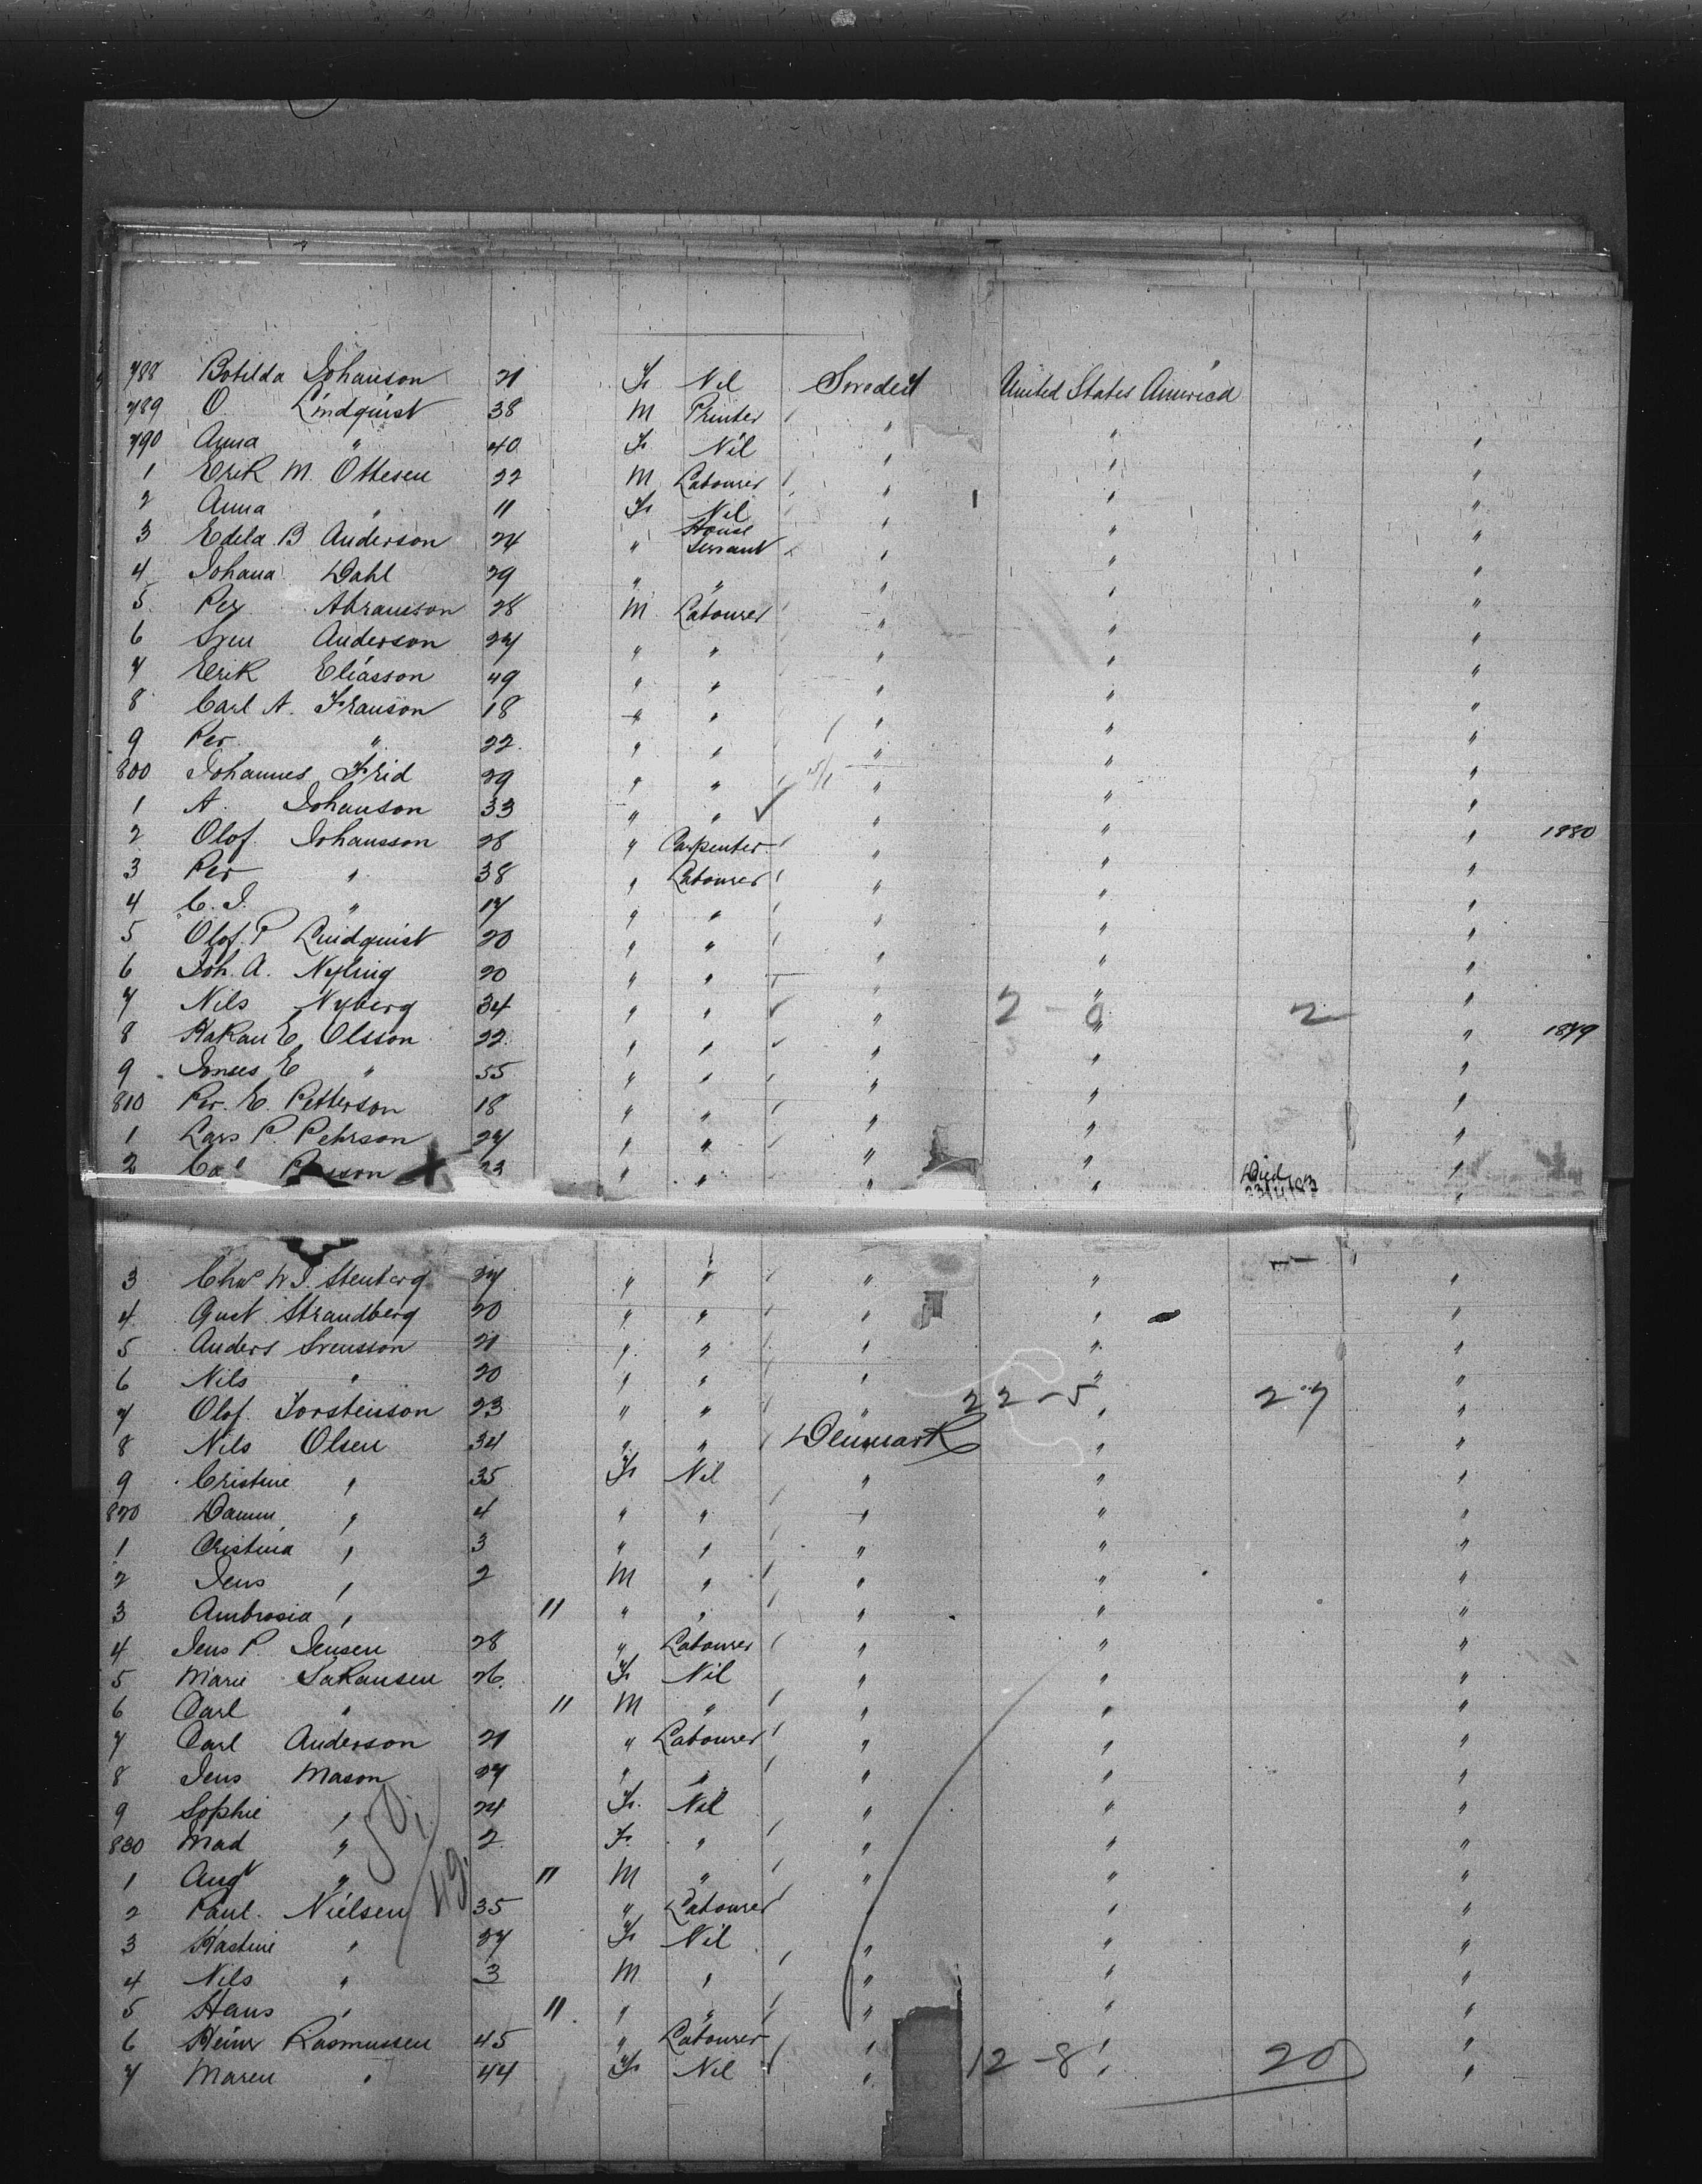 788 Botilda Johanson 21 F Nil Sweden United States America
789 O. Lindquist 38 M Printer " "
790 Anna " 40 F Nil " " "
1 Erik M. Ottesen 22 M Labourer " " "
2 Anna " 11 F Nil " " "
3 Edela B Anderson 24 " House Servant " " "
4 Johana Dahl 29 " " " " "
5 Per Abramson 28 M Labourer " " "
6 Sven Anderson 27 " " " " "
7 Erik Eliasson 49 " " " " "
8 Carl A. Franson 18 " " " " "
9 Per " 22 " " " " "
800 Johannes Frid 29 " " " " "
1 A. Johanson 33 " " " " "
2 Olof Johansson 28 " Carpenter " " " 1880
3 Per " 38 " Labourer " " "
4 C. J. " 17 " " " " "
5 Olof P Lindquist 20 " " " " "
6 Joh. A. Nyling 20 " " " " "
7 Nils Nyberg 34 " " " " " 2 - 0 2
8 Hakan E Olsson 22 " " " " " 1879
9 Jonees E " 55 " " " " "
810 Per. E. Petterson 18 " " " " "
1 Lars P. Pehrson 27 " " " " "
2 23 " " " " Died "
3 Stenberg 27 " " " " "
4 Gust Strandberg 20 " " " " "
5 Anders Svensson 21 " " " " "
6 Nils " 20 " " " " "
7 Olof Torsteinson 23 " " " " " 22 - 5 27
8 Nils Olsen 34 " " Denmark " "
9 Cristine " 35 F Nil " " "
820 " 4 " " " " "
1 Cristina " 3 " " " " "
2 Jens " 2 M " " " "
3 Ambrosia " 11 " " " " "
4 Jens P. Jensen 28 " Labourer " " "
5 Marie Sakansen 26 F Nil " " "
6 Carl " 11 M " " " "
7 Carl Anderson 21 " Labourer " " "
8 Jens Mason 27 " " " " "
9 Sophie " 24 F. Nil " " "
830 Mad " 2 F. " " " "
1 Augt " 11 M " " " "
2 Paul. Nielsen 35 " Labourer " "
3 Hastine " 27 F Nil " " "
4 Nils " 3 M " " " "
5 Hans " 11 " " " " "
6 Rasmussen 45 " Labourer " " "
7 Maren " 44 F Nil " " " 12 - 8 20